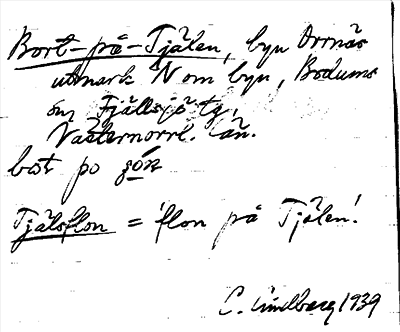 Bort-på-Tjälen, byn Orrnäs
utmark N om byn, Bodums
sn Fjällsjö tg,
Västernorrl. län.
bot po
Tjälsflon = 'flon på Tjälen'.
C. Lindberg 1939